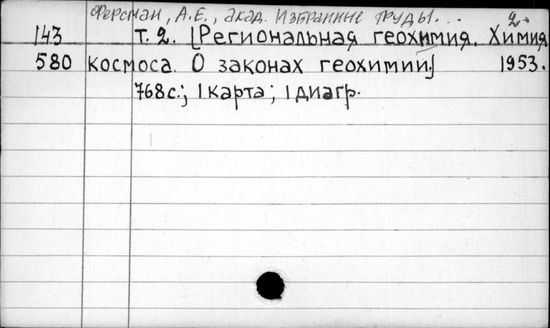 Ферсман, А.Е., акад. Избранные труды... 2.
143 т. 2. [Региональная геохимия. Химия
580 космоса. О законах геохимии.] 1953.
768с.; 1 карта; 1 диагр.